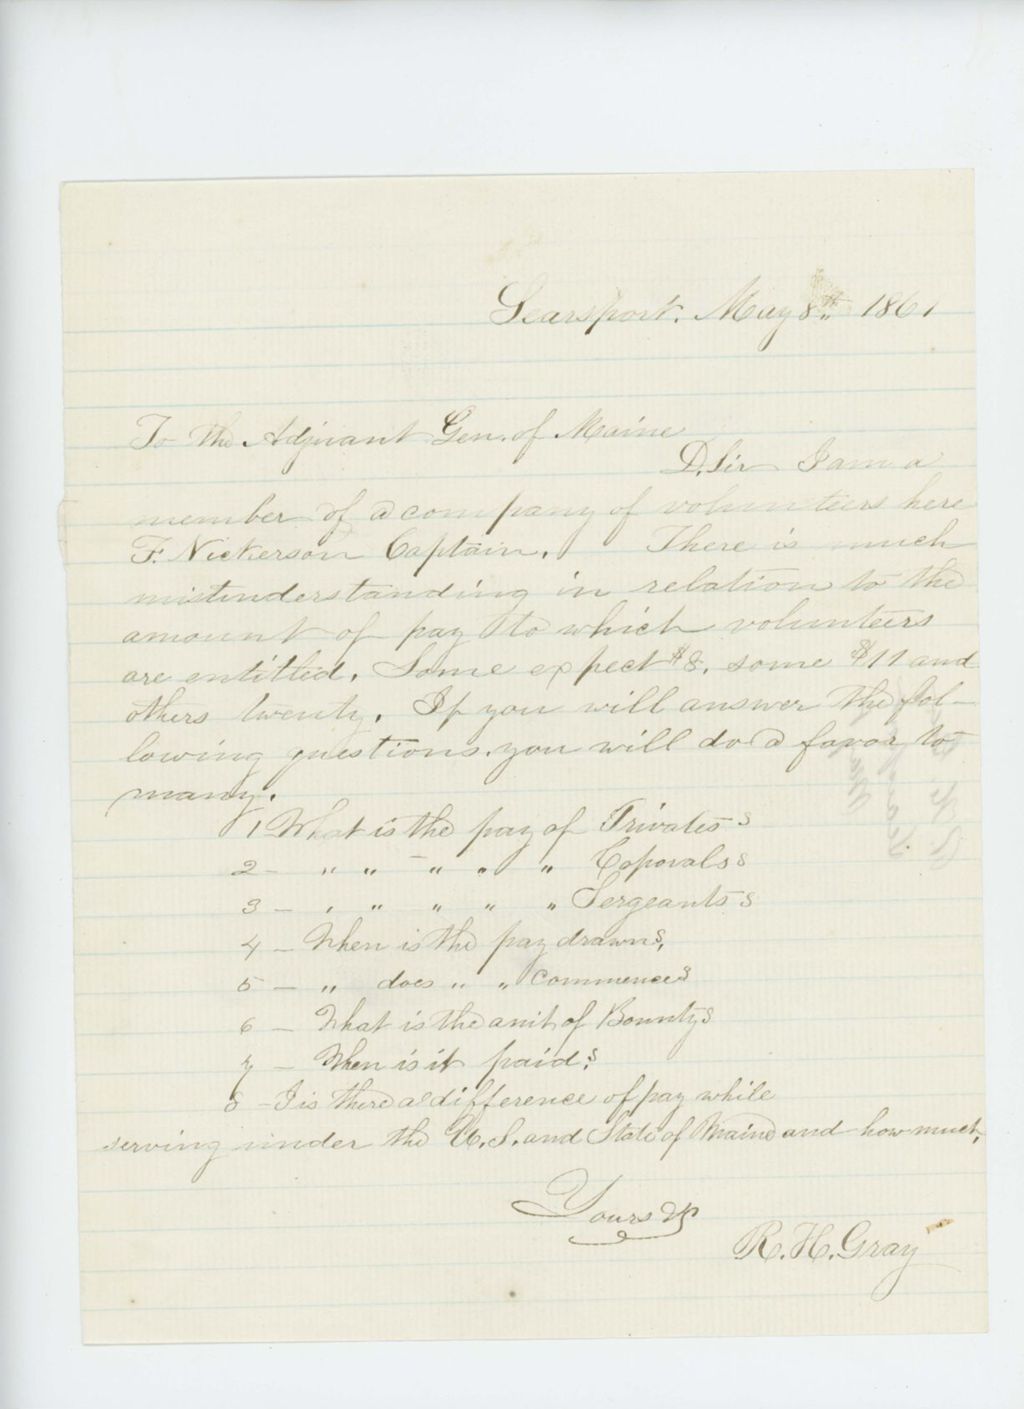 Searsport. May 8th 1861
To the Adjutant Gen. of Maine
D. Sir I am a
member of a company of volunteers here
F. Nickerson Captain. There is much
misunderstanding in relation to the
amount of pay to which volunteers
are entitled. Some expect $8. some $11 and
others twenty. If you will answer the fol-
lowing questions. you will do a favor to
many.
1 What is the pay of Privates?
2 - " " " " " Coporals?
3 - " " " " " Sergeants?
4 - When is the pay drawn?
5 - " does " " commence?
6 - What is the amt. of Bounty?
7 - When is it paid?
8 - Is there a difference of pay while
serving under the U.S. and State of Maine and how much,
Yours
R. H. Gray